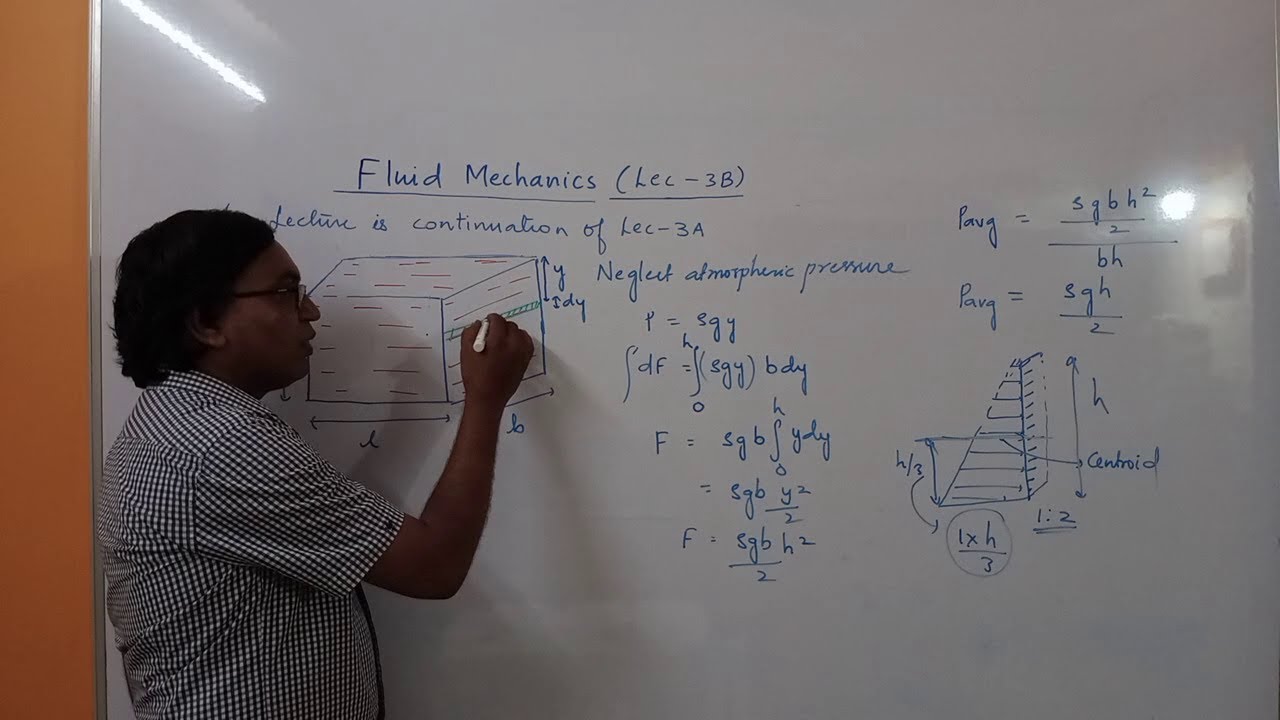 Fluid Mechanics (Lec - 3B)
Lecture is continuation of Lec-3A
Neglect atmospheric pressure
y
dy
l
b
P = ρgy
∫dF = ∫₀ʰ (ρgy) bdy
F = ρgb ∫₀ʰ ydy
= ρgb y²/2
F = ρgb h²/2
Pavg = (ρgbh²/2)/bh
Pavg = ρgh/2
h
h/3
Centroid
1:2
1×h/3